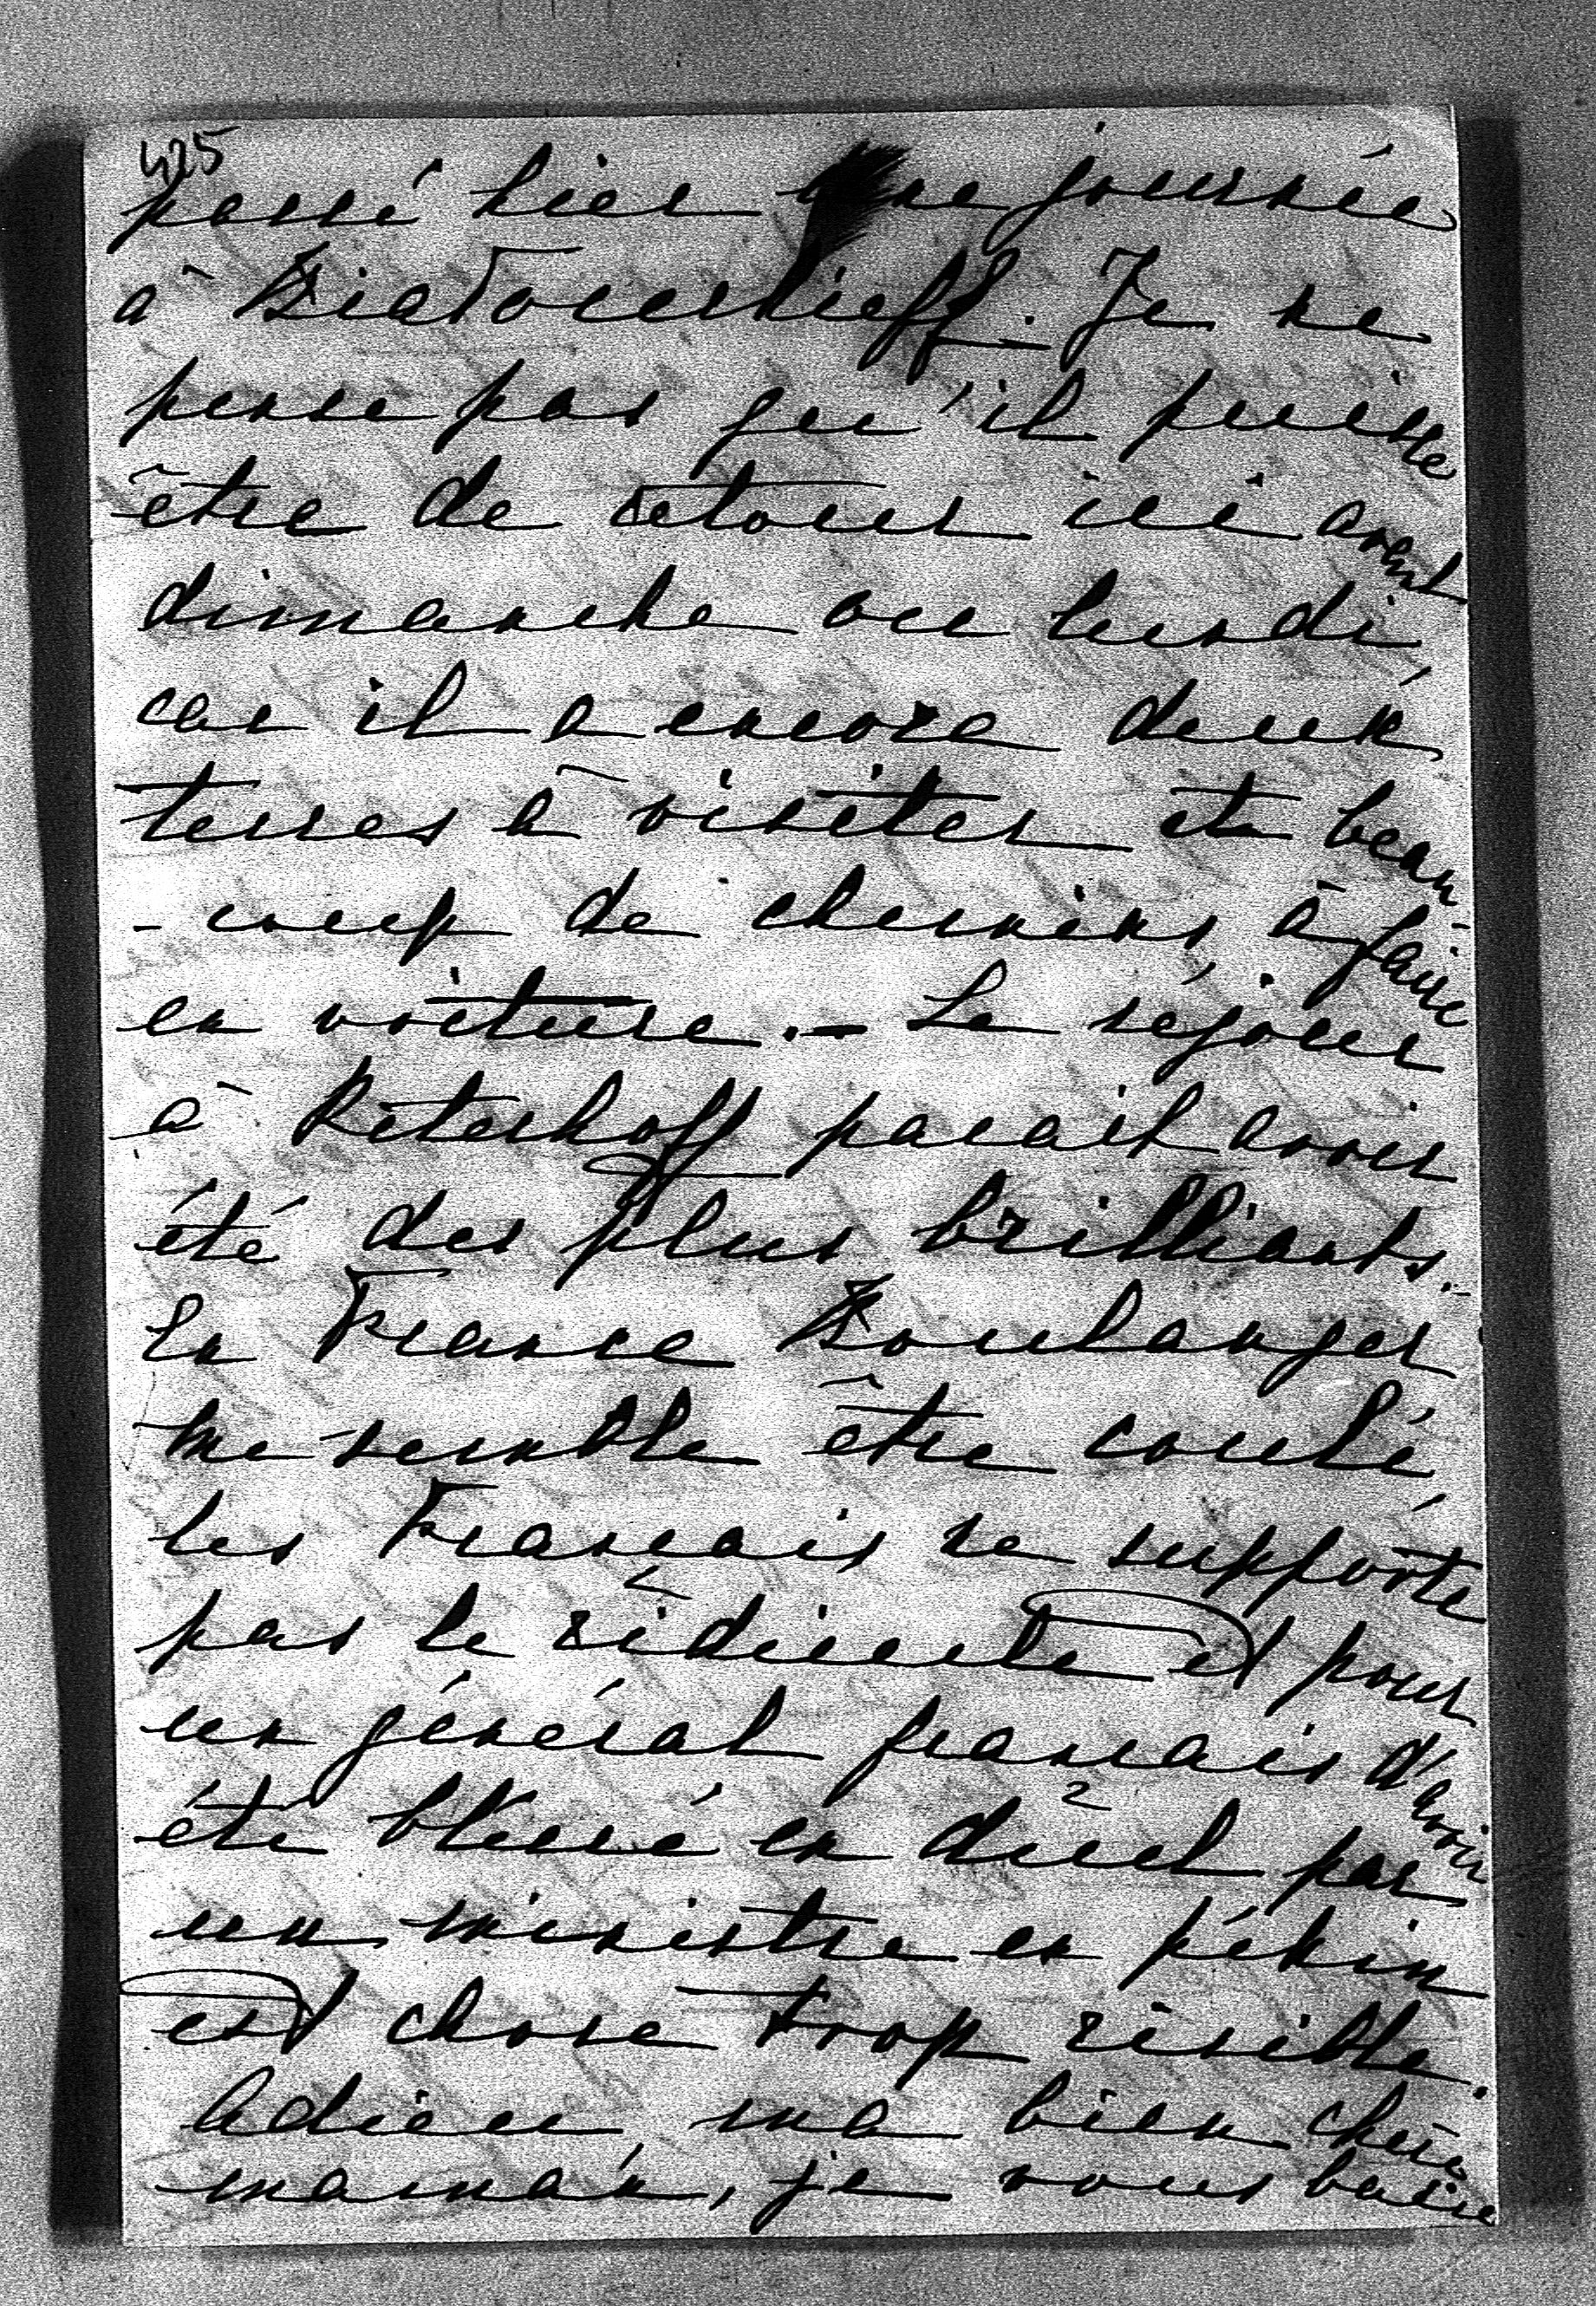 425
passé hier une journée
à Biatocerkieff. Je ne
pense pas qu'il puisse
être de retour ici avant
dimanche ou lundi,
car il a encore deux
terres à visiter et beau-
-coup de chemins à faire
en voiture. — Le séjour
à Péterhoff parait avoir
été des plus brilliants. -
En France Boulanger
me semble être coulé,
les Français ne supporte
pas le ridicule et pour
un général français d'avoir
été blessé en duel par
un ministre en pékin
est chose trop risible.
Adieu, ma bien chère
maman, je vous baise